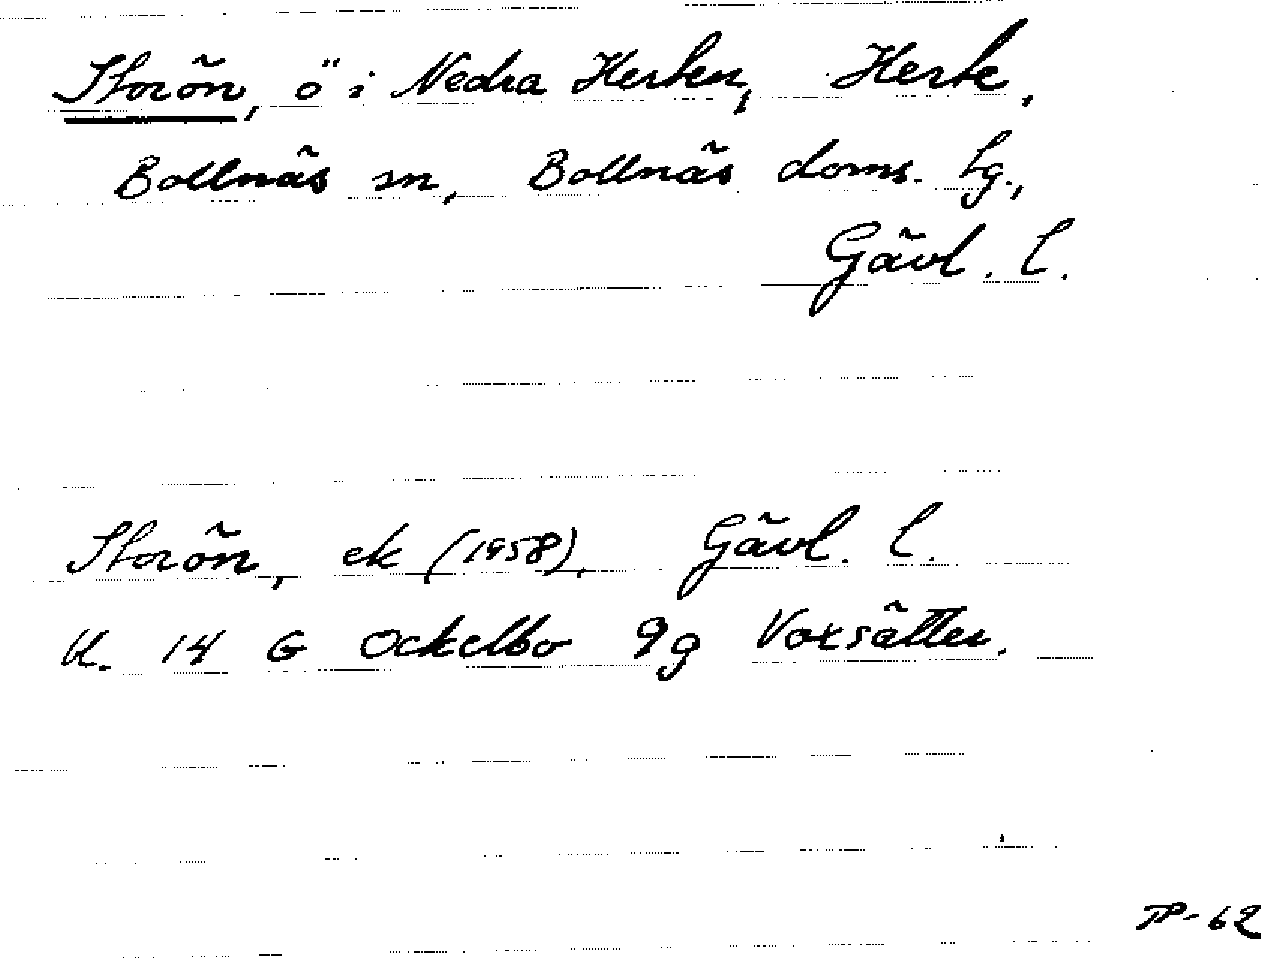 Storön, ö i Nedra Herken, Herte,
Bollnäs sn, Bollnäs doms. tg.,
Gävl. l.
Storön, ek (1958), Gävl. l.
K. 14 G Ockelbo 9g Voxsätter.
TP-62